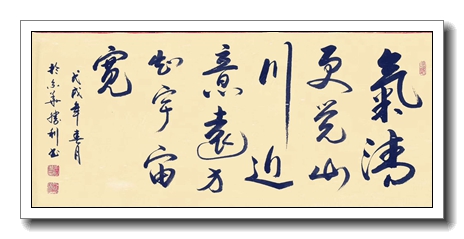 氣清
更觉山
川近
意遠方
知宇宙
宽
戊戌年春月
於京華勝利书